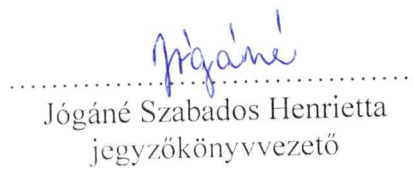 Jógáné
........................................
Jógáné Szabados Henrietta
jegyzőkönyvvezető